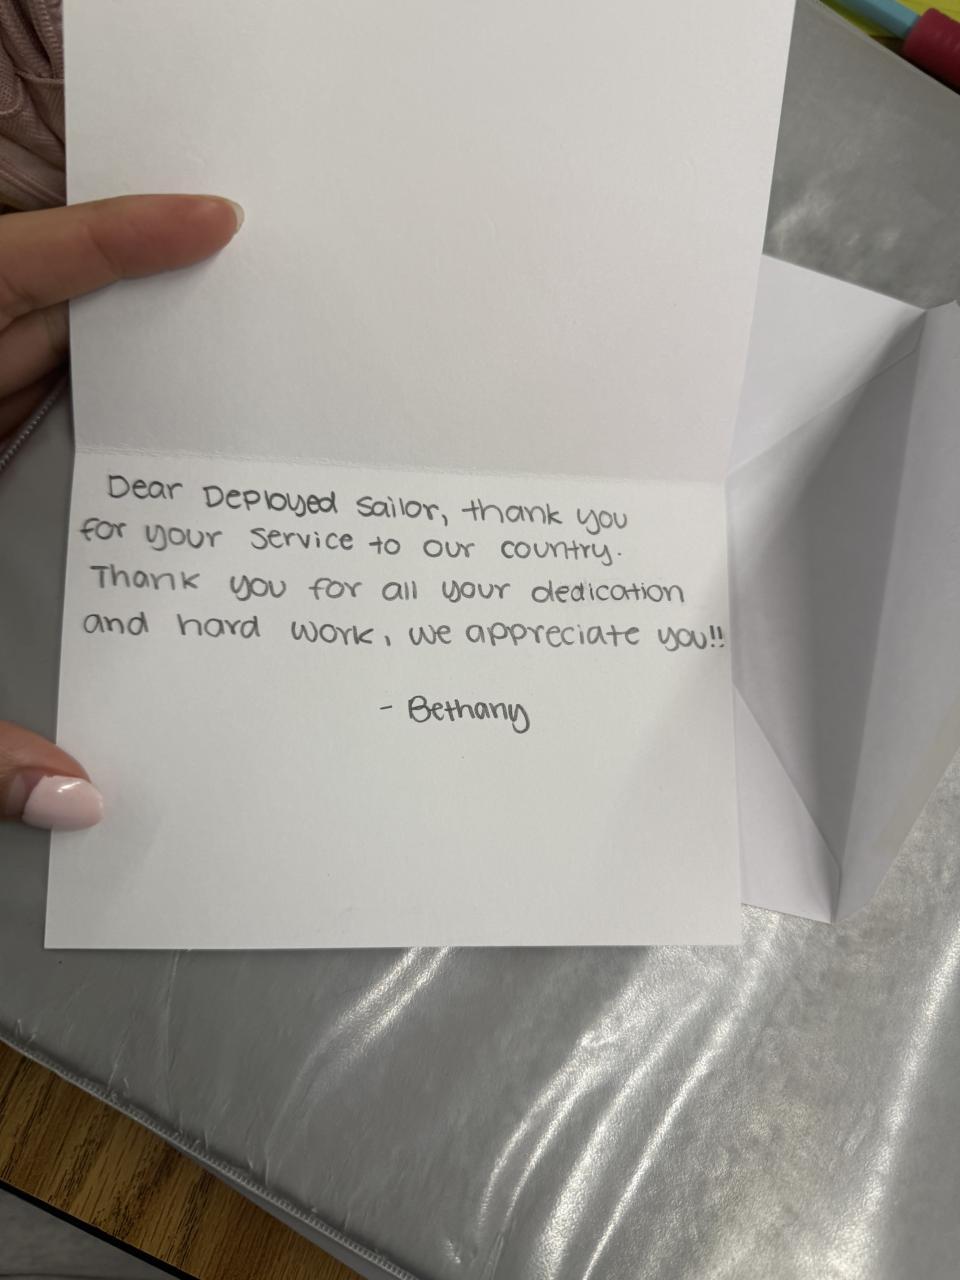 Dear Deployed Sailor, thank you
for your service to our country.
Thank you for all your dedication
and hard work, we appreciate you!!
- Bethany